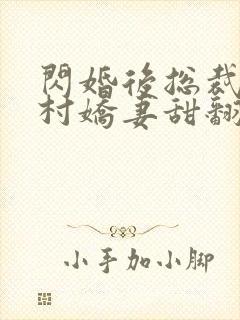 閃婚後總裁
村嬌妻甜翻
小手加小脚